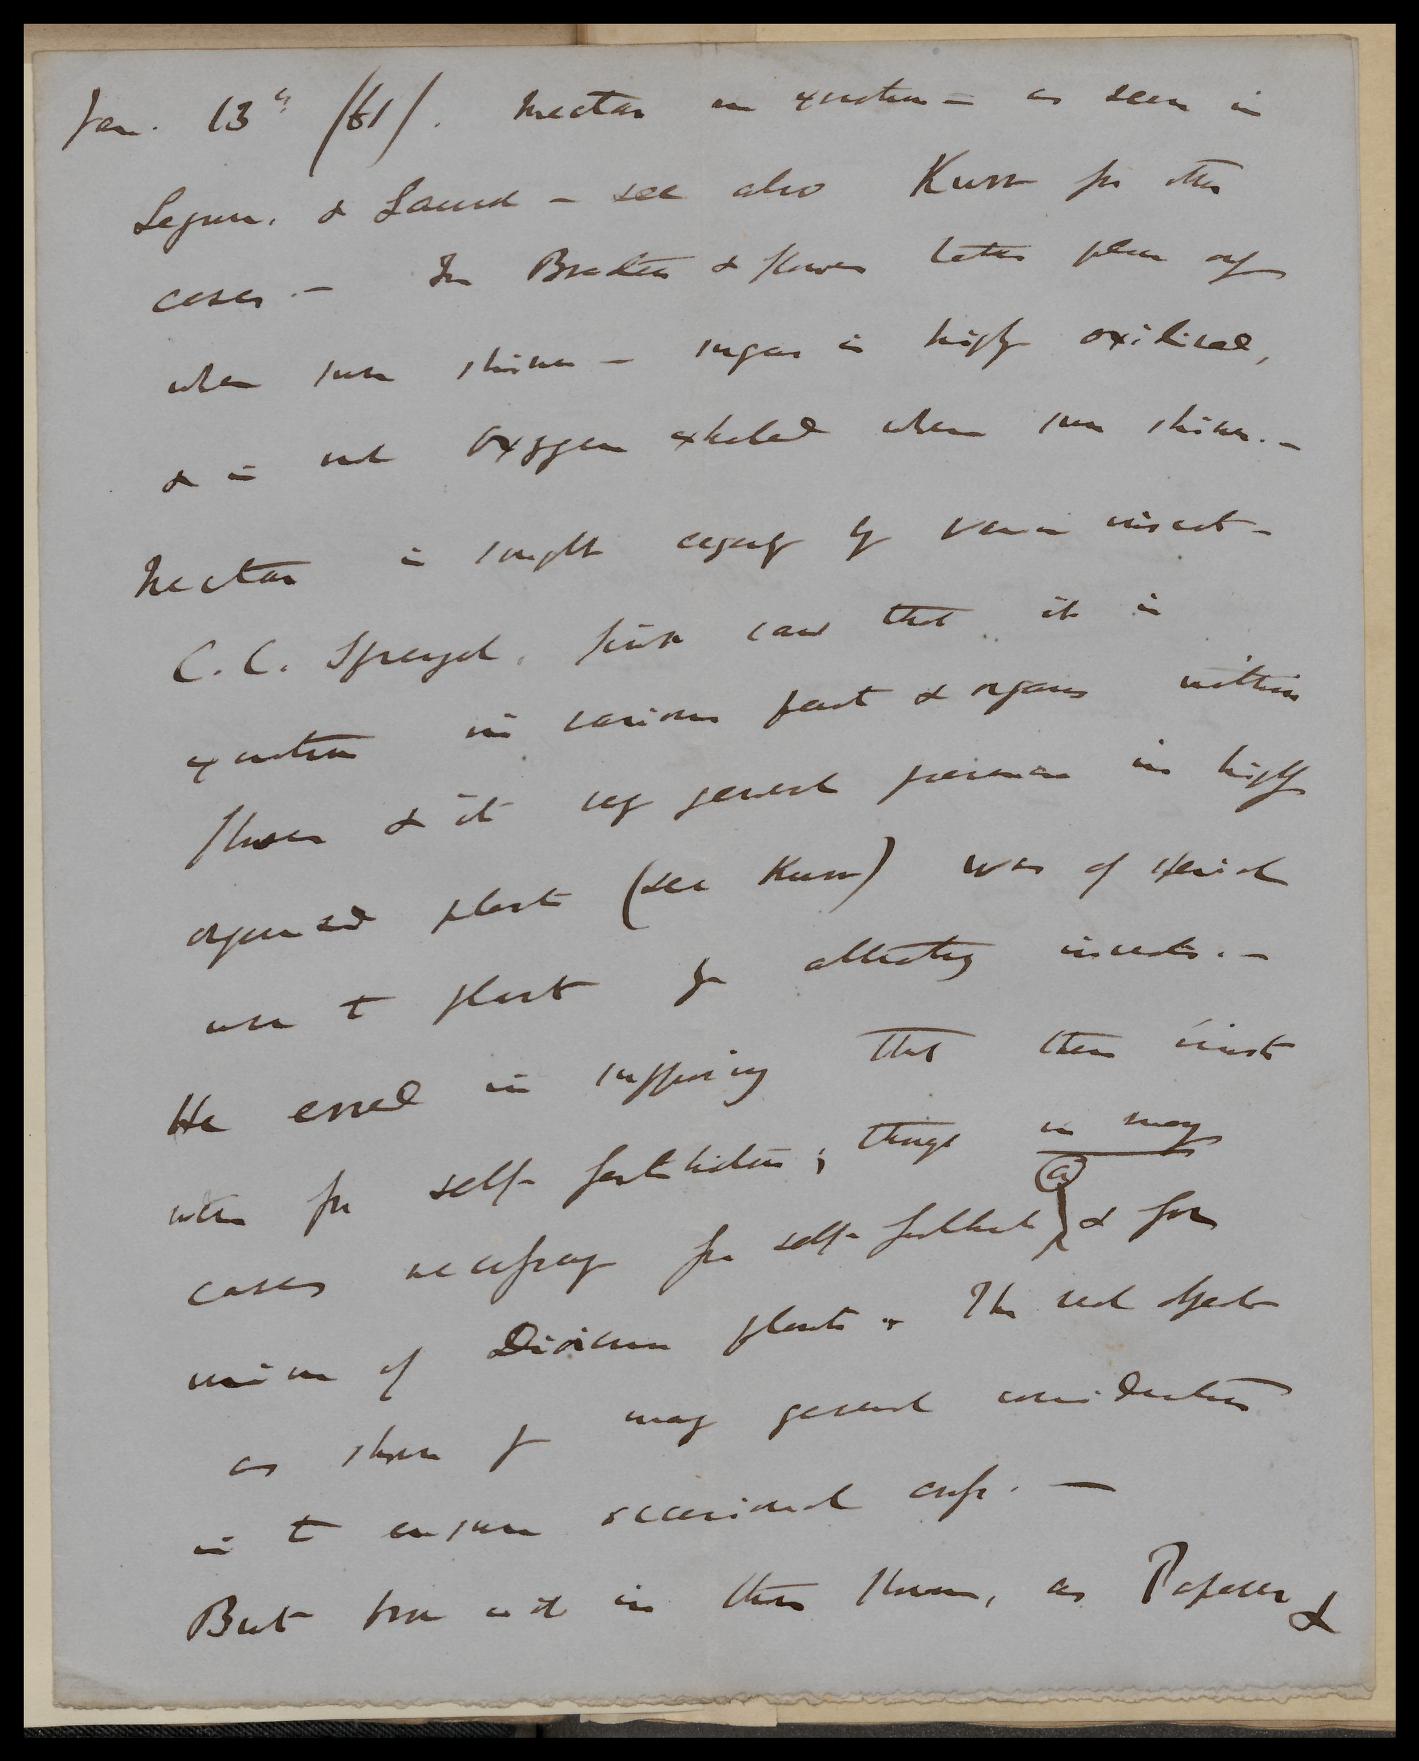 Jan. 13th /61/. Nectar an excretion — as seen in
Legum. & Laurel — see also Kurr for other
cases. — In Bracteæ & flowers takes place only
when sun shines — sugar is highly oxidised,
& is not oxygen exhaled when sun shines. —
Nectar is sought eagerly by various insects —
C. C. Sprengel, first saw that it is
excretion in various part & organs within
flower & it very general presence in highly
organised plants (see Kurr) was of special
use to plant by attracting insects. —
He erred in supposing that these insects
were for self-fertilisation; though in many
(a)
cases necessary for self-fertilisat & for
union of Dioicous plants. The real object
as shown by many general considerations
is to ensure occasional cross. —
But how is it in those flowers, as Papaver &